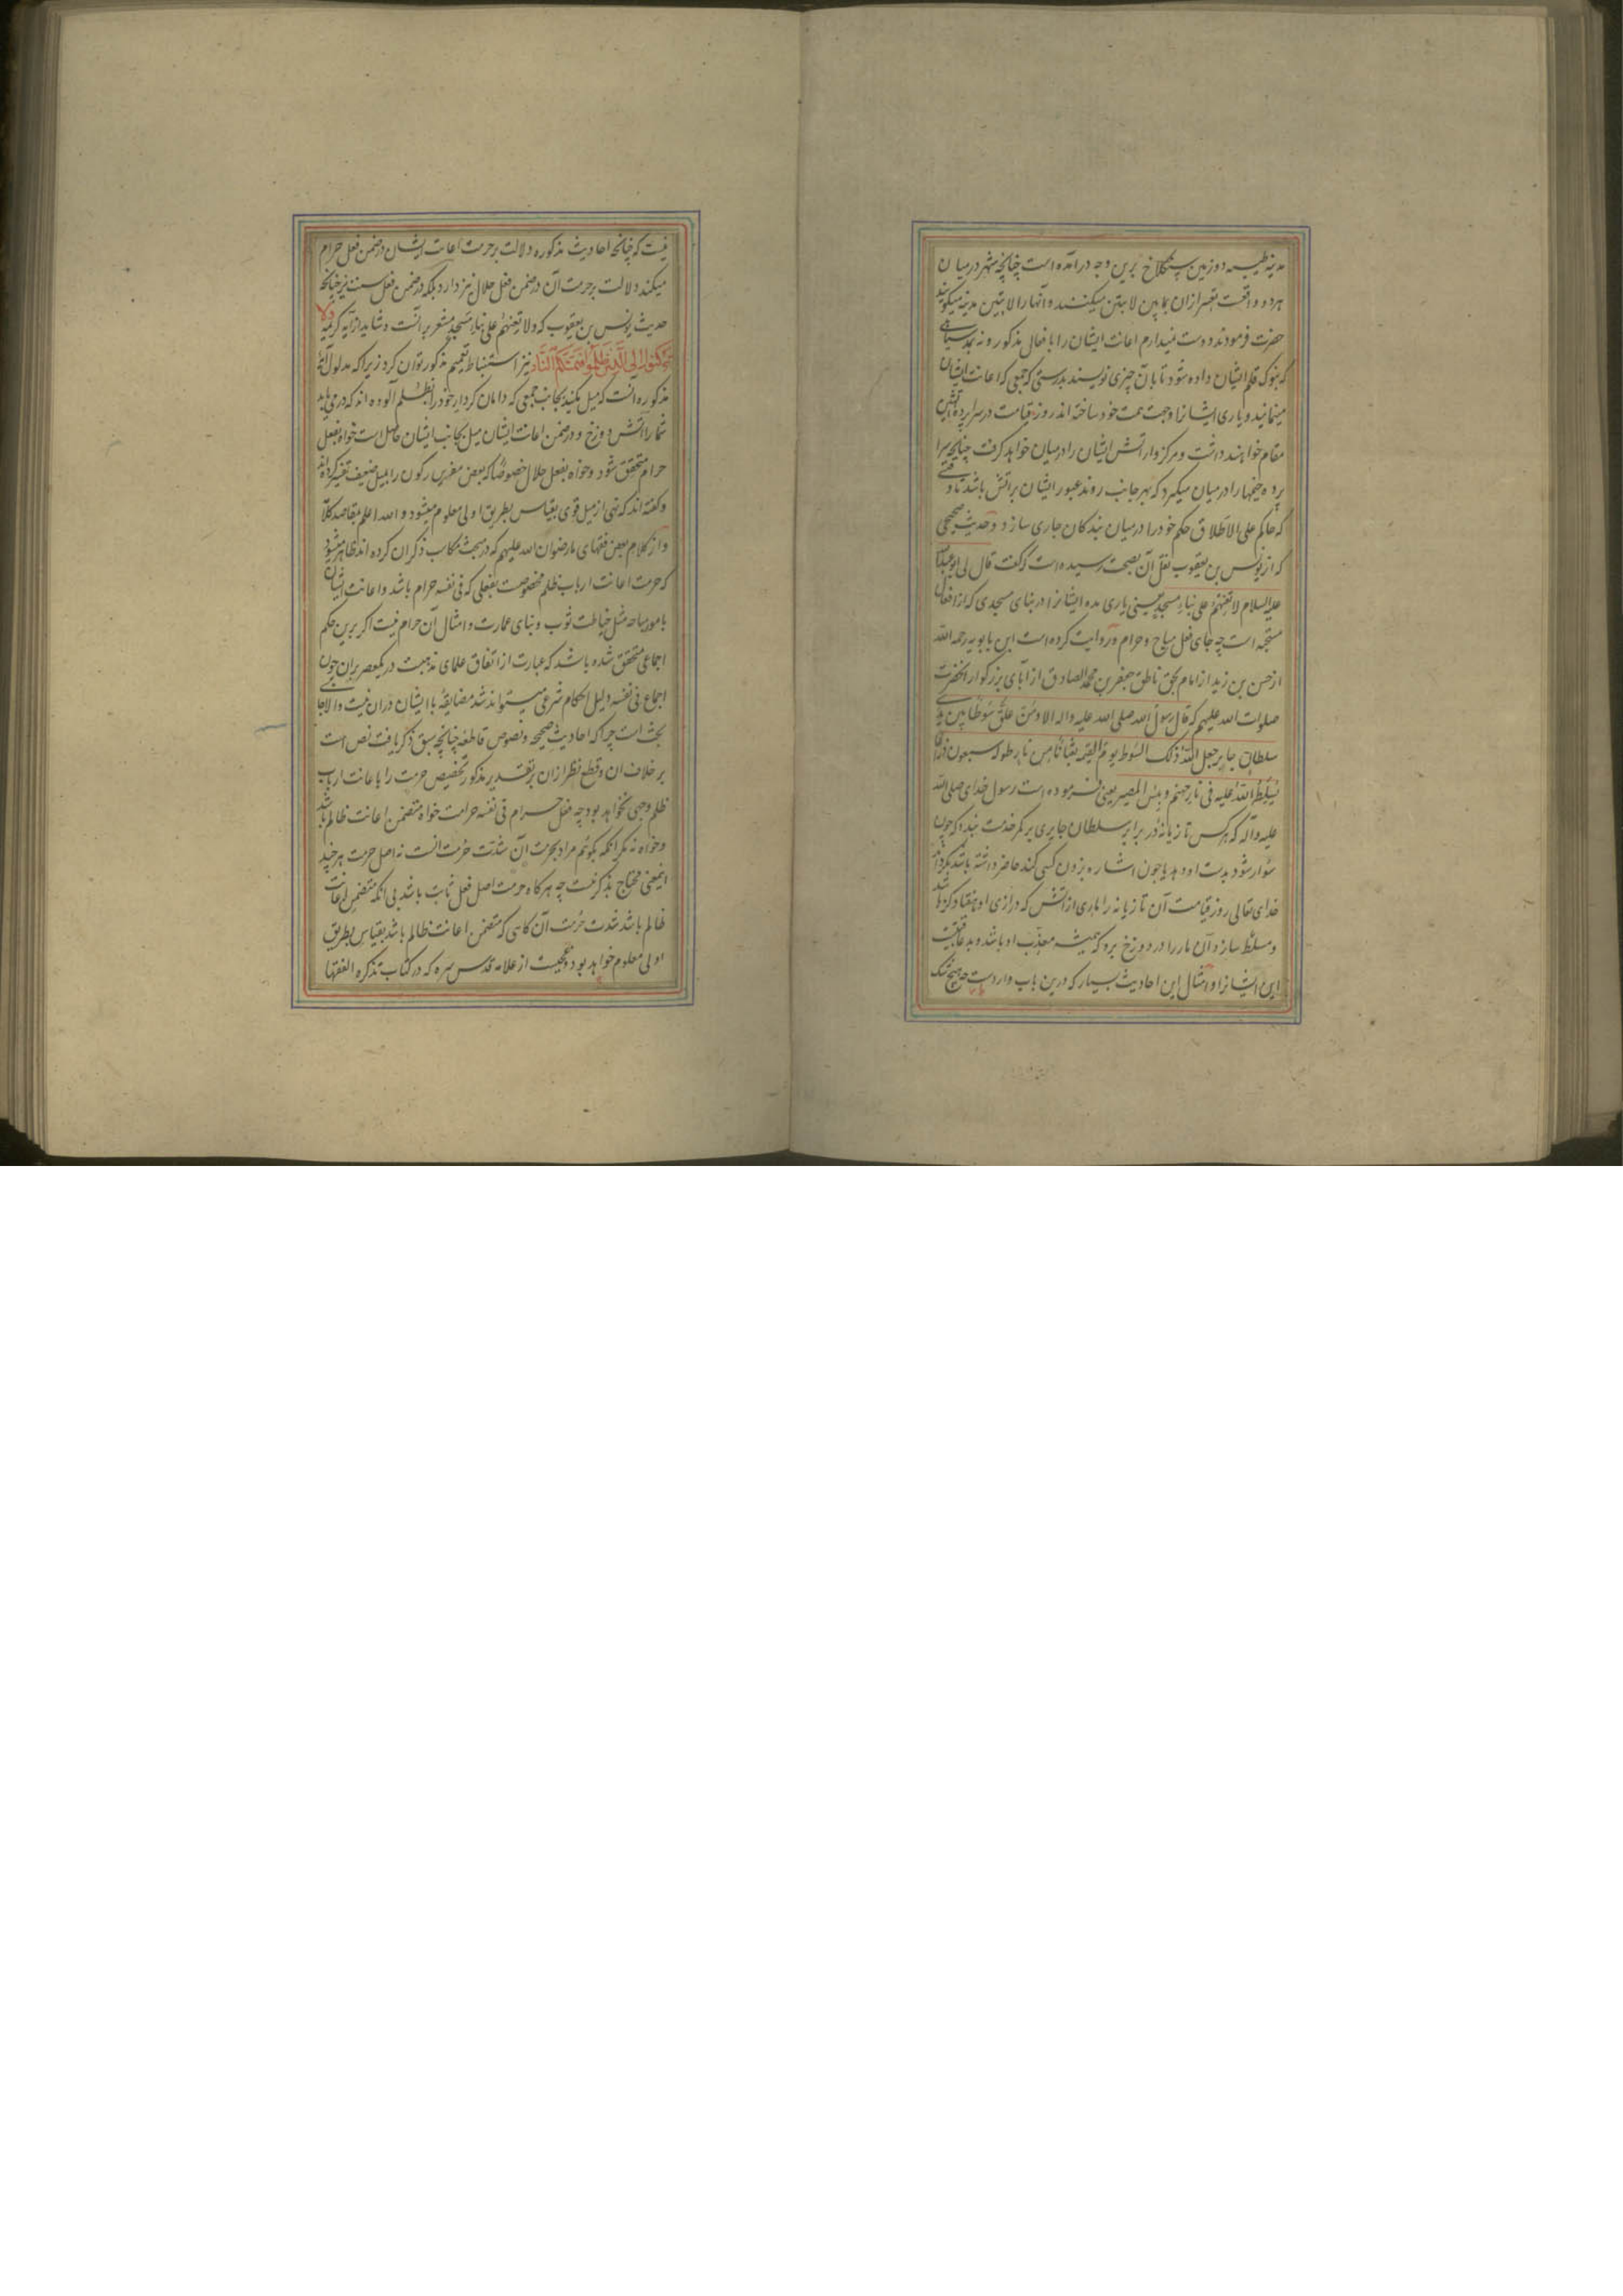 مدینه طیبه دو زمین سنگلاخ برین وجه درآمده است چنانچه شهر در میان
هر دو واقعست تعبیر ازان بما بین لابتین میکنند و آنها را لابتین مدینه میکویند
حضرت فرمودند دوست نمیدارم اعانت ایشان را بافعال مذکور و نه بمد سیاهی
که بنوک قلم ایشان داده شود تا بآن چیزی نویسند بدرستی که جمعی که اعانت ایشان
مینمایند و یاری ایشانرا وجهت همت خود ساخته اند روز قیامت در سراپرده آتشین
مقام خواهند داشت و مرکزوار آتش ایشان را در میان خواهد کرفت چنانچه سرا
پرده خیمها را در میان میکیرد که بهر جانب روند عبور ایشان بر آتش باشد تا وقتی
که حاکم علی الاطلاق حکم خود را در میان بندکان جاری سازد و حدیث صحیحی
که از یونس بن یعقوب نقل آن بصحت رسیده است که گفت قال لی ابو عبدالله
علیه السلام لا تعنهم علی بناء مسجد یعنی یاری مده ایشانرا در بنای مسجدی که از افعال
مستحبه است چه جای فعل مباح و حرام و روایت کرده است ابن بابویه رحمه الله
از حسن بن زید از امام بحق ناطق جعفر بن محمد الصادق از آبای بزرکوار آنحضرت
صلوات الله علیهم که قال رسول الله صلی الله علیه واله الا ومن علق سوطا بین یدی
سلطان جایر جعل الله ذلک السوط یوم القیمة ثعبانا من نار طوله سبعون ذراعا
یسلط الله علیه فی نار جهنم و بئس المصیر یعنی فرموده است رسول خدای صلی الله
علیه وآله که هر کس تازیانه در برابر سلطان جابری بر کمر خدمت بندد که چون
سوار شود بدست او دهد یا چون اشاره بزدن کسی کند حاضر داشته باشد بکرداند
خدای تعالی روز قیامت آن تازیانه را ماری از آتش که درازی او هفتاد کز باشد
و مسلط سازد آن مار را در دوزخ برو که همیشه معذب او باشد و بد عاقبتیست
این ایشانرا و امثال این احادیث بسیار که درین باب وارد است چه هیچ شک
نیست که چنانچه احادیث مذکوره دلالت بر حرمت اعانت ایشان در ضمن فعل حرام
میکند دلالت بر حرمت آن در ضمن فعل حلال نیز دارد بلکه در ضمن فعل سنت نیز چنانچه
حدیث یونس بن یعقوب که و لا تعنهم علی بناء مسجد مشعر بر آنست و شاید از آیه کریمه ولا
ترکنوا الی الذین ظلموا فتمسکم النار نیز استنباط تعمیم مذکور توان کرد زیرا که مدلول آیه
مذکوره آنست که میل مکنید بجانب جمعی که دامان کردار خود را بظلم آلوده اند که درمی یابد
شما را آتش دوزخ و در ضمن اعانت ایشان میل بجانب ایشان حاصل است خواه بفعل
حرام متحقق شود و خواه بفعل حلال خصوصا که بعض مفسرین رکون را بمیل ضعیف تفسیر کرده اند
و گفته اند که نهی از میل قوی بقیاس بطریق اولی معلوم میشود و الله اعلم بمقاصد کلامه
و از کلام بعض فقهای ما رضوان الله علیهم که در مبحث مکاسب ذکر آن کرده اند ظاهر میشود
که حرمت اعانت ارباب ظلم مخصوصست بفعلی که فی نفسه حرام باشد و اعانت ایشان
بامور مباحه مثل خیاطت ثوب و بنای عمارت و امثال آن حرام نیست اکر برین حکم
اجماعی متحقق شده باشد که عبارت از اتفاق علمای مذهبست در یکعصر بران چون
اجماع فی نفسه دلیل احکام شرعی میتواند شد مضایقه با ایشان دران نیست و الا جای
بحث است چرا که احادیث صحیحه و نصوص قاطعه چنانچه سبق ذکر یافت نص است
بر خلاف ان و قطع نظر ازان بر تقدیر مذکور تخصیص حرمت را باعانت ارباب
ظلم وجهی نخواهد بود چه فعل حرام فی نفسه حرامست خواه متضمن اعانت ظالم باشد
و خواه نه مکر آنکه بکوئیم مراد بحرمت آن شدت حرمت آنست نه اصل حرمت هر چند
اینمعنی محتاج بذکر نیست چه هر کاه حرمت اصل فعل ثابت باشد بی آنکه متضمن اعانت
ظالم باشد شدت حرمت آن کاهی که متضمن اعانت ظالم باشد بقیاس بطریق
اولی معلوم خواهد بود و عجبست از علامه قدس سره که در کتاب تذکره الفقها